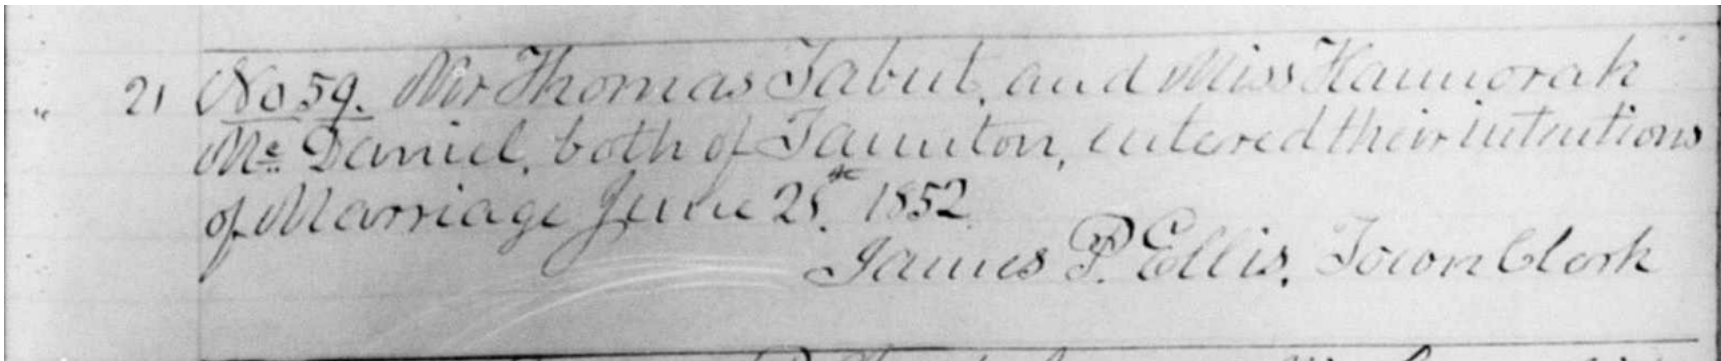 " 21 No 59. Mr Thomas Tabut, and Miss Hannorah
Mc Daniel, both of Taunton, entered their intentions
of Marriage June 21st 1852.
James P. Ellis, Town Clerk